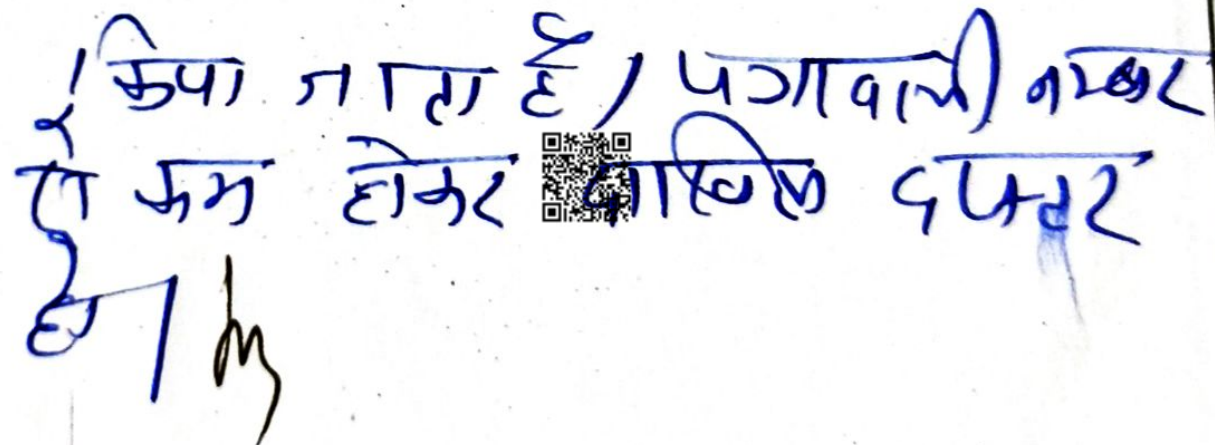 किया जाता है। पत्रावली नम्बर
से कम होकर दाखिल दफ्तर
हो।